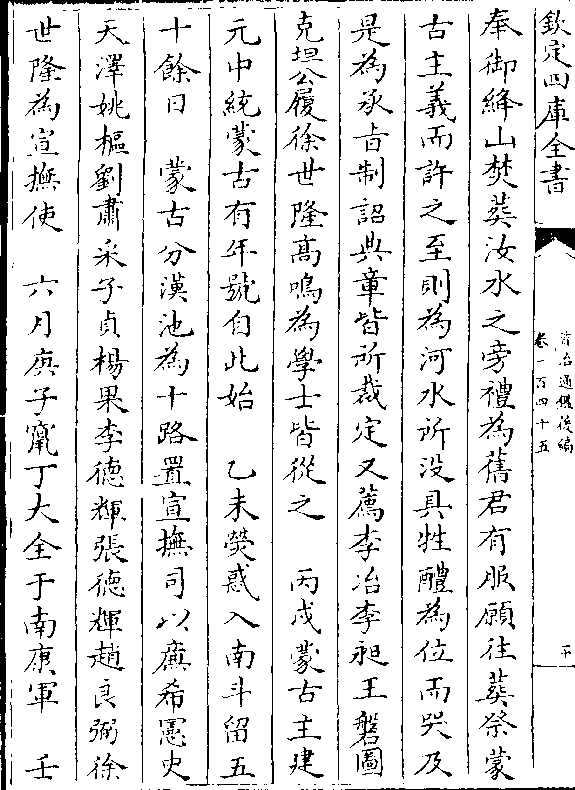 欽定四庫全書
資治通鑑後編
卷一百四十五
奉御絳山焚葬汝水之旁禮為舊君有服願往葬祭蒙
古主義而許之至則為河水所没具牲醴為位而哭及
是為承㫖制詔典章皆所裁定又薦李冶李昶王磐圖
克坦公履徐世隆髙鳴為學士皆從之　丙戌蒙古主建
元中統蒙古有年號自此始　乙未熒惑入南斗留五
十餘日　蒙古分漢池為十路置宣撫司以亷希憲史
天澤姚樞劉肅宋子貞楊果李德輝張德輝趙良弼徐
世隆為宣撫使　六月庚子竄丁大全于南康軍　壬